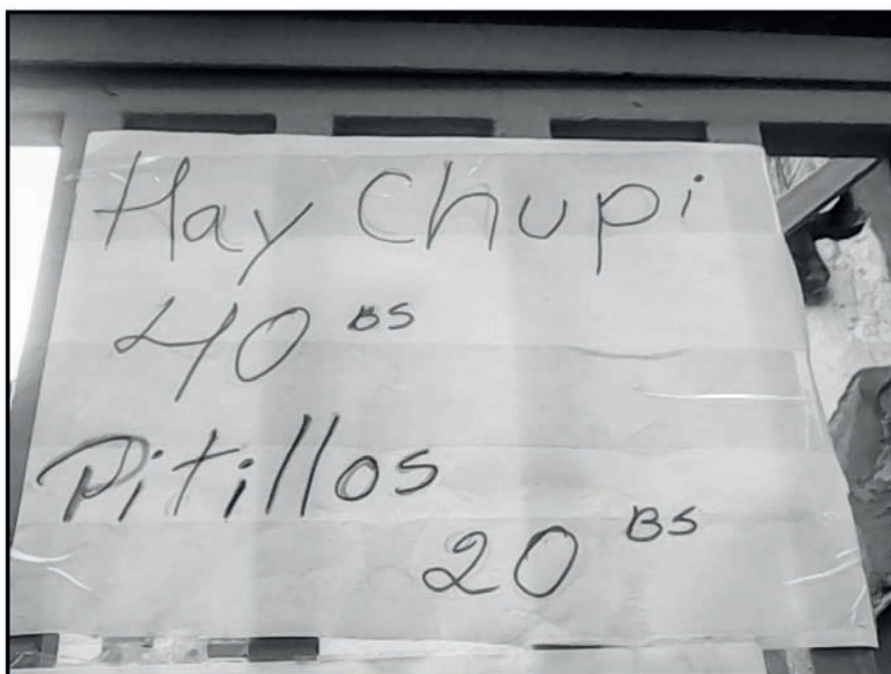 Hay Chupi
40 BS
Pitillos
20 BS